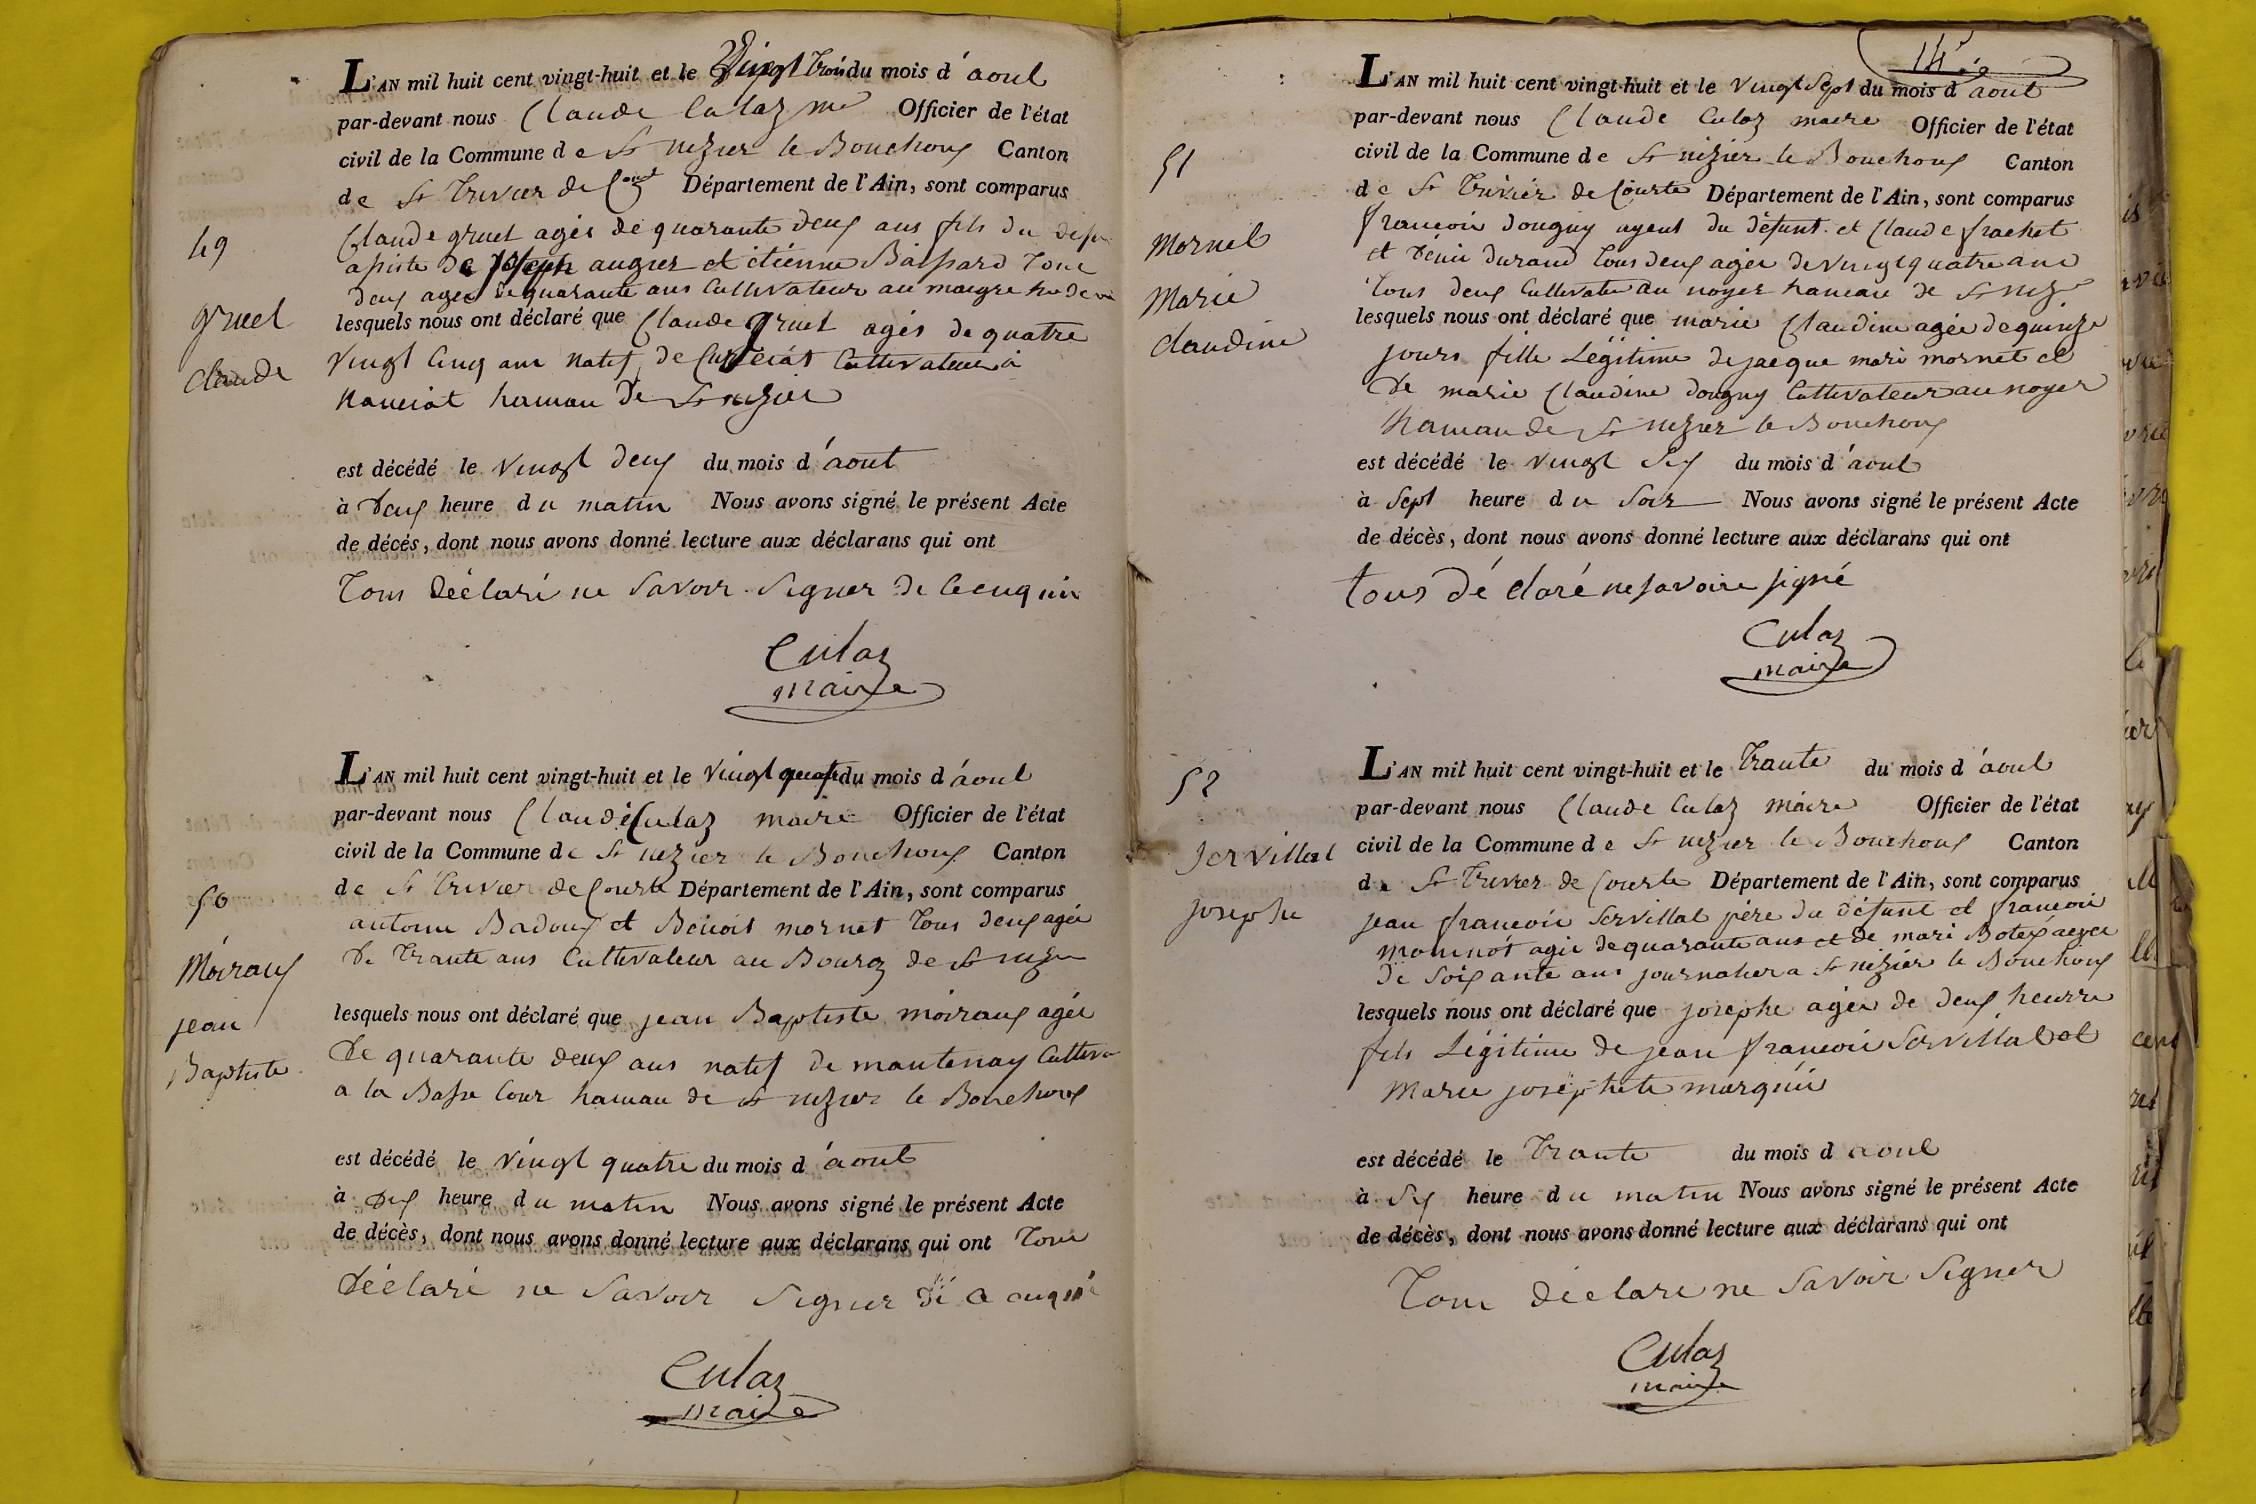 L'AN mil huit cent vingt-huit et le Vingt trois du mois d'aout
par-devant nous Claude Culaz me Officier de l'état
civil de la Commune de St nizier le Bouchoux Canton
de St Trivier de Court Département de l'Ain, sont comparus
49
Claude gruel agés de quarante deux ans fils du
apiste de Joseph augier et étienne Baissard tous
deux agés de quarante ans Cultivateur au
gruel
lesquels nous ont déclaré que Claude gruel agés de quatre
vingt Cinq ans natif de Curciat Cultivateur à
Claude
hamau de St nizier
est décédé le vingt deux du mois d'aout
à deux heure du matin Nous avons signé le présent Acte
de décés, dont nous avons donné lecture aux déclarans qui ont
tous déclaré ne Savoir Signer de ce enquis
Culaz
maire
L'AN mil huit cent vingt-huit et le vingt quatre du mois d'aout
par-devant nous Claude Culaz maire Officier de l'état
civil de la Commune de St nizier le Bouchoux Canton
de St Trivier de Courte Département de l'Ain, sont comparus
50
antoine Badoux et Benoit mornet tous deux agés
Moiraux
de trante ans Cultivateur au Bourg de St nizier
jean
lesquels nous ont déclaré que jean Baptiste moiraux agés
Baptiste
de quarante deux ans natif de mantenay Cultiva
a la Basse Cour hamau de St nizier le Bouchoux
est décédé le vingt quatre du mois d'aout
à dix heure du matin Nous avons signé le présent Acte
de décès, dont nous avons donné lecture aux déclarans qui ont tous
déclaré ne Savoir Signer de ce enquis
Culaz
maire
14e
L'AN mil huit cent vingt-huit et le vingt Sept du mois d'aout
par-devant nous Claude Culaz maire Officier de l'état
civil de la Commune de St nizier le Bouchoux Canton
51
de St Trivier de Courte Département de l'Ain, sont comparus
françois dougny ayeul du défunt et Claude frachet
mornet
et denis durand tous deux agée de vingt quatre ans
marie
tous deux Cultivateur au noyer hameau de St niz
claudine
lesquels nous ont déclaré que marie Claudine agée de quinze
jours fille Légitime de jacque mari mornet et
de marie Claudine dougny Cultivateur au noyer
hamau de St nizier le Bouchoux
est décédé le vingt Six du mois d'aout
à Sept heure du Soir Nous avons signé le présent Acte
de décès, dont nous avons donné lecture aux déclarans qui ont
tous dé claré ne savoire signé
Culaz
maire
L'AN mil huit cent vingt-huit et le trante du mois d'aout
52
par-devant nous Claude Culaz maire Officier de l'état
civil de la Commune de St nizier le Bouchoux Canton
Servillat
de St Trivier de Courte Département de l'Ain, sont comparus
josephe
jean françois Servillat pére du défunt et françois
agée de quarante ans et de mari
de Soixante ans journalier a St nizier le Bouchoux
lesquels nous ont déclaré que josephe agée de deux heurre
fils Légitime de jean françois Servillat et
marie joséphete marquis
est décédé le trante du mois d aout
à Six heure du matin Nous avons signé le présent Acte
de décès, dont nous avons donné lecture aux déclarans qui ont
tous déclare ne Savoir Signer
Culaz
maire